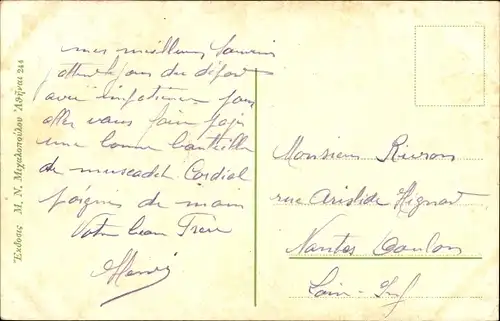 Ἔκδοσις Μ. Ν. Μιχαλοπούλου Ἀθῆναι 244
mes meilleurs souvenirs
attend le jour du départ
avec impatience pour
aller vous faire payer
une bonne bouteille
de muscadet. Cordial
poignée de main
Votre beau Frère
Henri
Monsieur Rivron
rue Aristide Hignard
Nantes Doulon
Loire-Inf